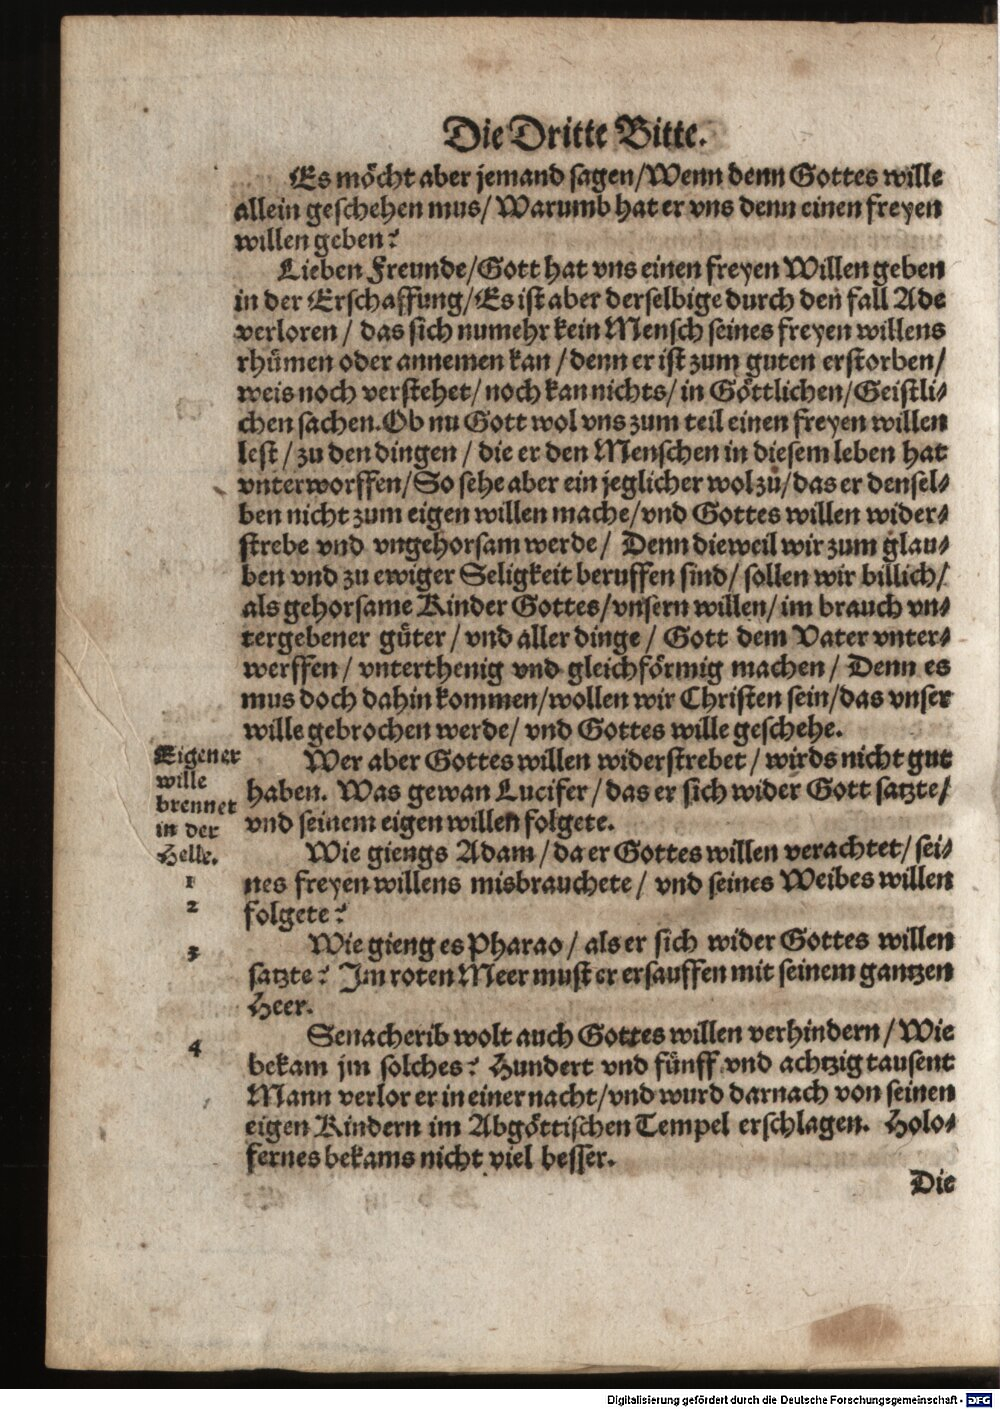 Die Dritte Bitte.
Es möcht aber jemand sagen/Wenn denn Gottes wille
allein geschehen mus/ Warumb hat er vns denn einen freyen
willen geben?
Lieben Freunde/Gott hat vns einen freyen Willen geben
in der Erschaffung/Es ist aber derselbige durch den fall Ade
verloren / das sich numehr kein Mensch seines freyen willens
rhümen oder annemen kan /denn er ist zum guten erstorben/
weis noch verstehet/ noch kan nichts/ in Göttlichen/Geistli-
chen sachen.Ob nu Gott wol vns zum teil einen freyen willen
lest / zu den dingen / die er den Menschen in diesem leben hat
vnterworffen/So sehe aber ein jeglicher wol zu/das er densel-
ben nicht zum eigen willen mache/vnd Gottes willen wider-
strebe vnd vngehorsam werde/ Denn dieweil wir zum glau-
ben vnd zu ewiger Seligkeit beruffen sind/ sollen wir billich/
als gehorsame Kinder Gottes/vnsern willen/im brauch vn-
tergebener güter / vnd aller dinge / Gott dem Vater vnter-
werffen/ vnterthenig vnd gleichförmig machen/ Denn es
mus doch dahin kommen/wollen wir Christen sein/das vnser
wille gebrochen werde/ vnd Gottes wille geschehe.
Eigener
wille
brennet
in der
Helle.
Wer aber Gottes willen widerstrebet / wirds nicht gut
haben. Was gewan Lucifer/das er sich wider Gott satzte/
vnd seinem eigen willen folgete.
1
2
Wie giengs Adam/da er Gottes willen verachtet/ sei-
nes freyen willens misbrauchete / vnd seines Weibes willen
folgete?
3
Wie gieng es Pharao/ als er sich wider Gottes willen
satzte? Im roten Meer must er ersauffen mit seinem gantzen
Heer.
4
Senacherib wolt auch Gottes willen verhindern/Wie
bekam jm solches? Hundert vnd fünff vnd achtzig tausent
Mann verlor er in einer nacht/vnd wurd darnach von seinen
eigen Kindern im Abgöttischen Tempel erschlagen. Holo-
fernes bekams nicht viel besser.
Die
Digitalisierung gefördert durch die Deutsche Forschungsgemeinschaft - DFG